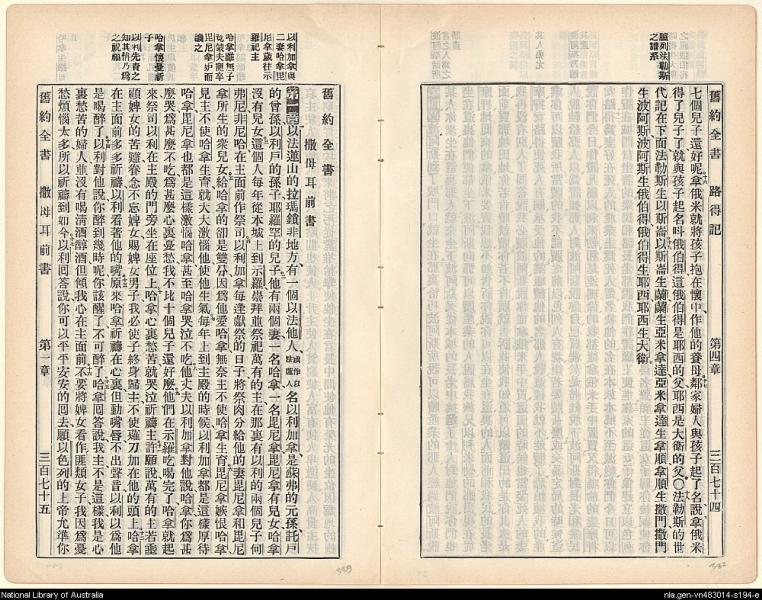 法勒斯
之譜系
舊約全書 路得記 第四章 三百七十四
七個兒子還好呢拿俄米就將孩子抱在懷中作他的養母鄰家婦人與孩子起了名說拿俄米
得了兒子了就與孩子起名呌俄伯得這俄伯得是耶西的父耶西是大衛的父〇法勒斯的世
代記在下面法勒斯生以斯崙以斯崙生蘭蘭生亞米拿達亞米拿達生拿順拿順生撒門撒門
生波阿斯波阿斯生俄伯得俄伯得生耶西耶西生大衛
以利加拿與
二妻哈拿毘
尼拿歲往示
羅祀主
哈拿懷憂祈
子
以利先責之
知其情乃爲
之祝福
舊約全書
撒母耳前書
第一章以法蓮山的拉瑪瑣非地方有一個以法他人名以利加拿是蘇弗的元孫託戶
的曾孫以利戶的孫子耶羅罕的兒子他有兩個妻一名哈拿一名毘尼拿毘尼拿有兒女哈拿
沒有兒女這個人每年從本城上到示羅崇拜並祭祀萬有的主在那裏有以利的兩個兒子何
弗尼非尼哈在主面前作祭司以利加拿每逢獻祭的日子將祭肉分給他的妻毘尼拿和毘尼
拿所生的衆兒女給哈拿的卻是雙分因爲他愛哈拿無奈主不使哈拿生育毘尼拿嫉恨哈拿
見主不使哈拿生育就大大激惱他使他生氣每年上到主殿的時候以利加拿都是這樣厚待
哈拿毘尼拿也都是這樣激惱哈拿甚至哈拿哭泣不吃他丈夫以利加拿對他說哈拿你爲甚
麼哭爲甚麼不吃爲甚麼心裏憂愁我不比十個兒子還好麼他們在示羅吃喝完了哈拿就起
來祭司以利在主殿的門旁坐在座位上哈拿心裏愁苦就哭泣祈禱主許願說萬有的主若垂
顧婢女的苦難眷念不忘婢女賜婢女男子我必使子終身歸主不使薙刀加在他的頭上哈拿
在主面前多多祈禱以利看著他的嘴原來哈拿祈禱在心裏但動嘴唇不出聲音以利以爲他
是喝醉了以利對他說你醉到幾時呢你該醒了不可醉了哈拿回答說我主不是這樣我是心
裏愁苦的婦人並沒有喝清酒醇酒但傾我心在主面前不要將婢女看作匪類女子我因爲憂
愁煩惱太多所以祈禱到如今以利回答說你可以平平安安的回去願以色列的上帝允準你
舊約全書 撒母耳前書 第一章 三百七十五
National Library of Australia
nla.gen-vn483014-s194-e